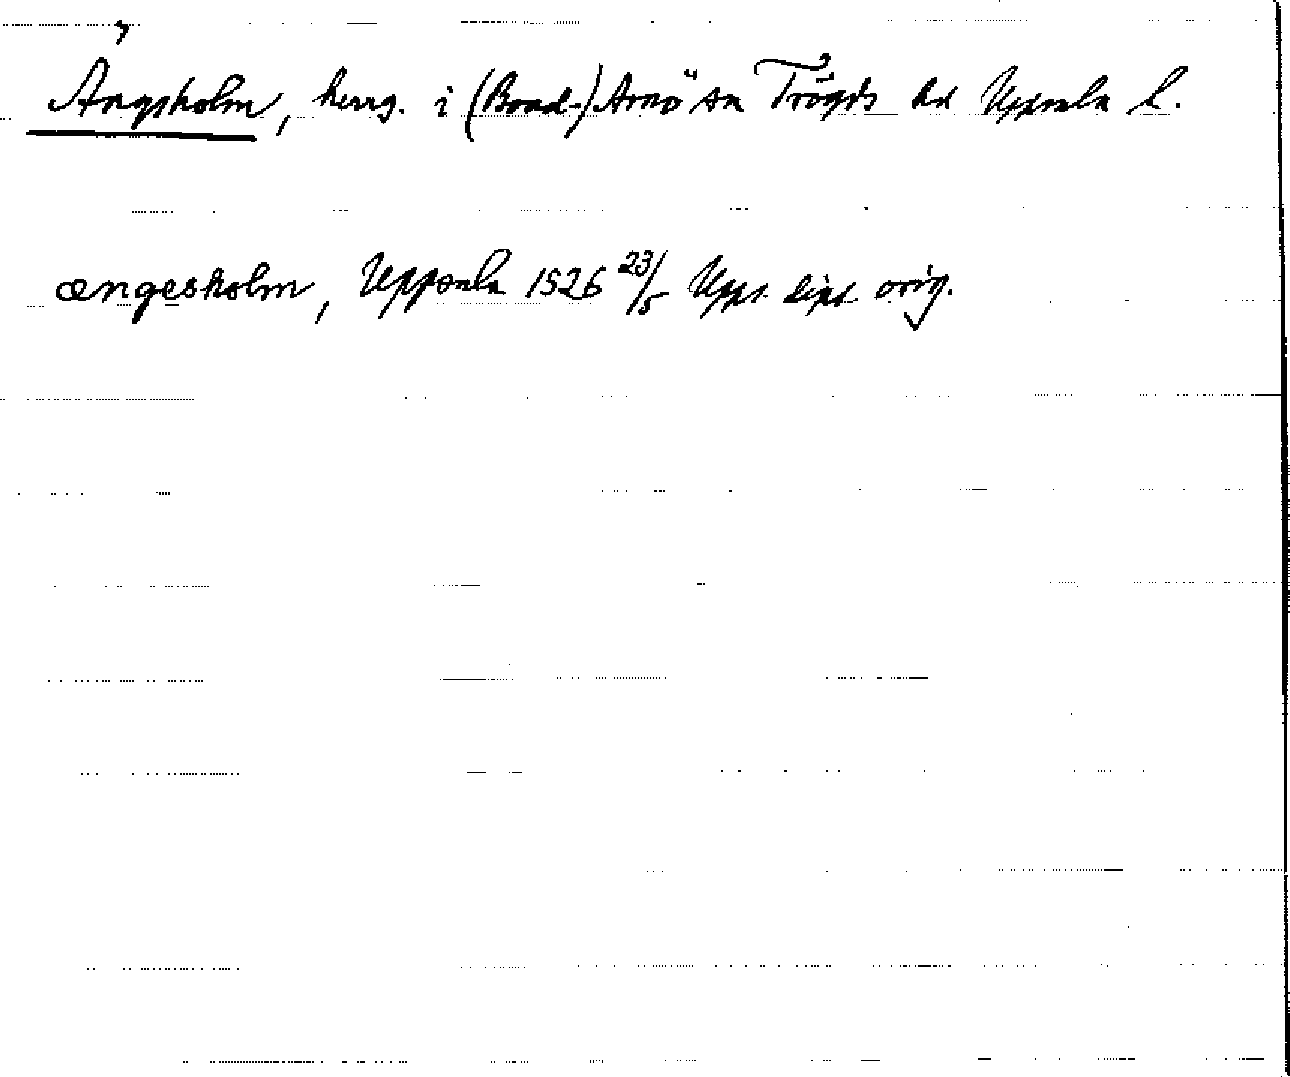 Ängsholm, herrg. i (Bond-) Arnö sn Trögds hd Uppsala l.
ængesholm, Uppsala 1526 23/5 Upps. dipl. orig.